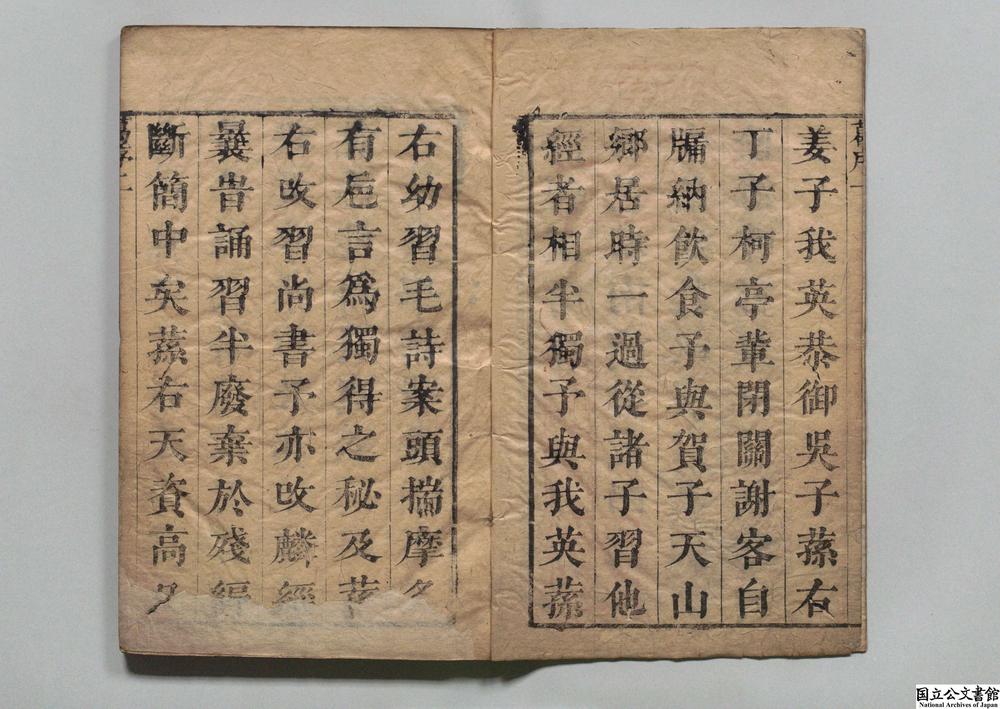 姜子我英恭御吳子蓀右
丁子柯亭輩閉關謝客自
牖納飲食予與賀子天山
鄉居時一過從諸子習他
經者相半獨予與我英蓀
右幼習毛詩案頭揣摩
有巵言爲獨得之秘及
右攺習尚書予亦攺麟經
曩昔誦習半廢棄於殘編
斷簡中矣蓀右天資高
国立公文書館
National Archives of Japan